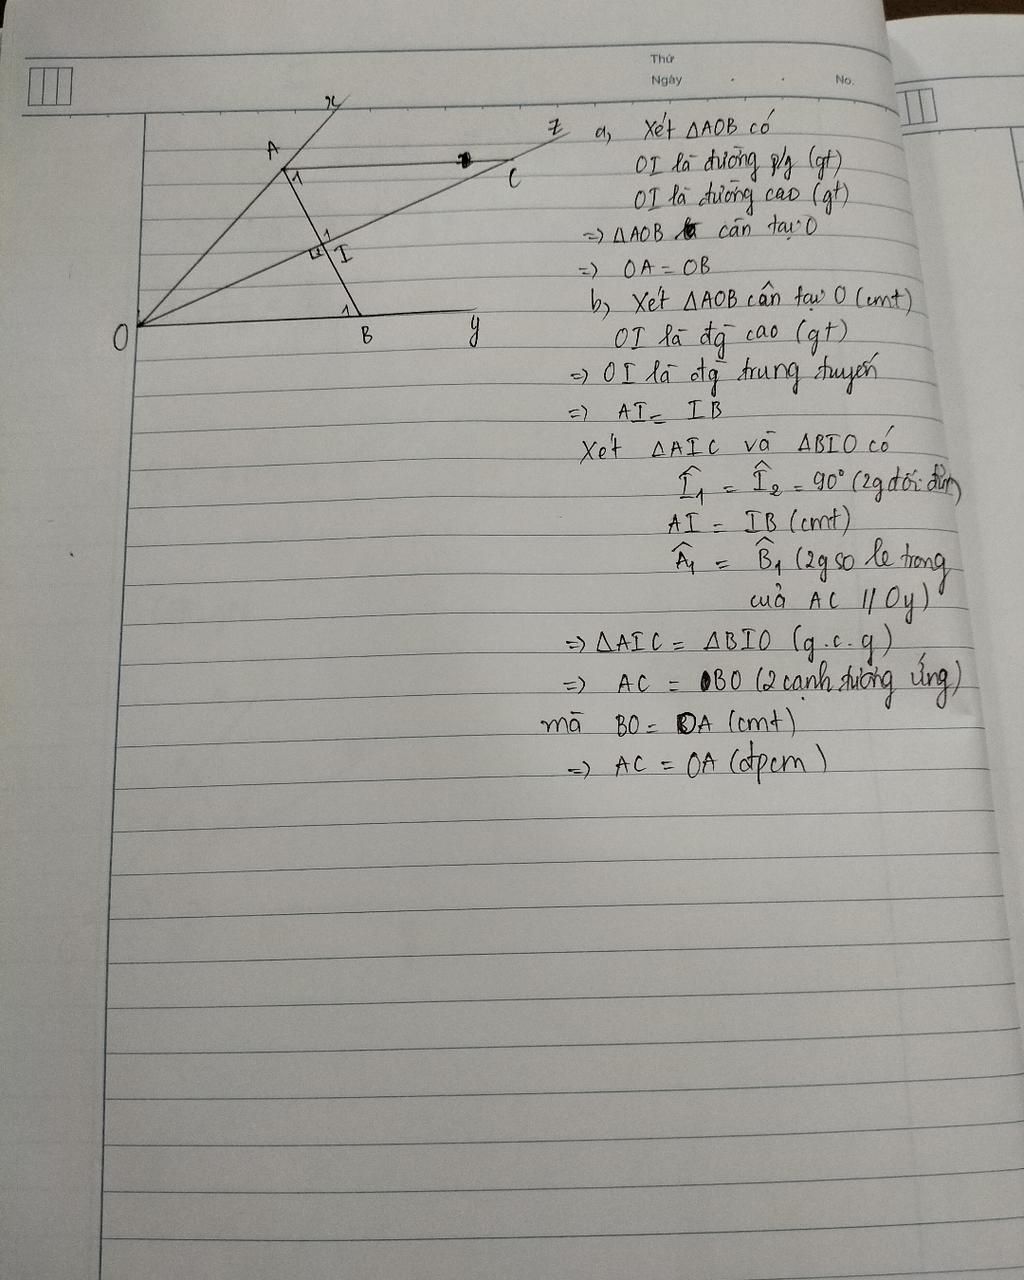 Thứ
Ngày . . No.
x
A
z
1
C
1
I
O
1
B
y
a, Xét ΔAOB có
OI là đường p/g (gt)
OI là đường cao (gt)
=> ΔAOB cân tại O
=> OA = OB
b, Xét ΔAOB cân tại O (cmt)
OI là đg cao (gt)
=> OI là đg trung tuyến
=> AI = IB
Xét ΔAIC và ΔBIO có
Î₁ = Î₂ = 90° (2g đối đỉnh)
AI = IB (cmt)
Â₁ = B̂₁ (2g so le trong
của AC // Oy)
=> ΔAIC = ΔBIO (g.c.g)
=> AC = BO (2 cạnh tương ứng)
mà BO = OA (cmt)
=> AC = OA (đpcm)